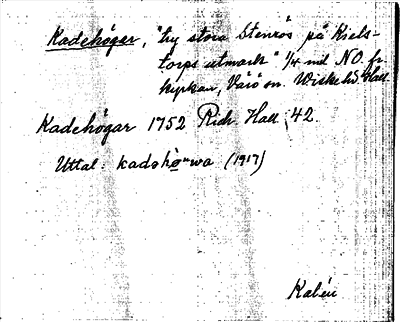 Kadehögar, "try stora Stenrös på Kiels-
torps utmark" 1/4 mil NO. fr.
kyrkan, Värö sn. Viske hd. Hall.
Kadehögar 1752 Rich. Hall. 42.
Uttal: kadəhø̱"wa (1917)
Kalén